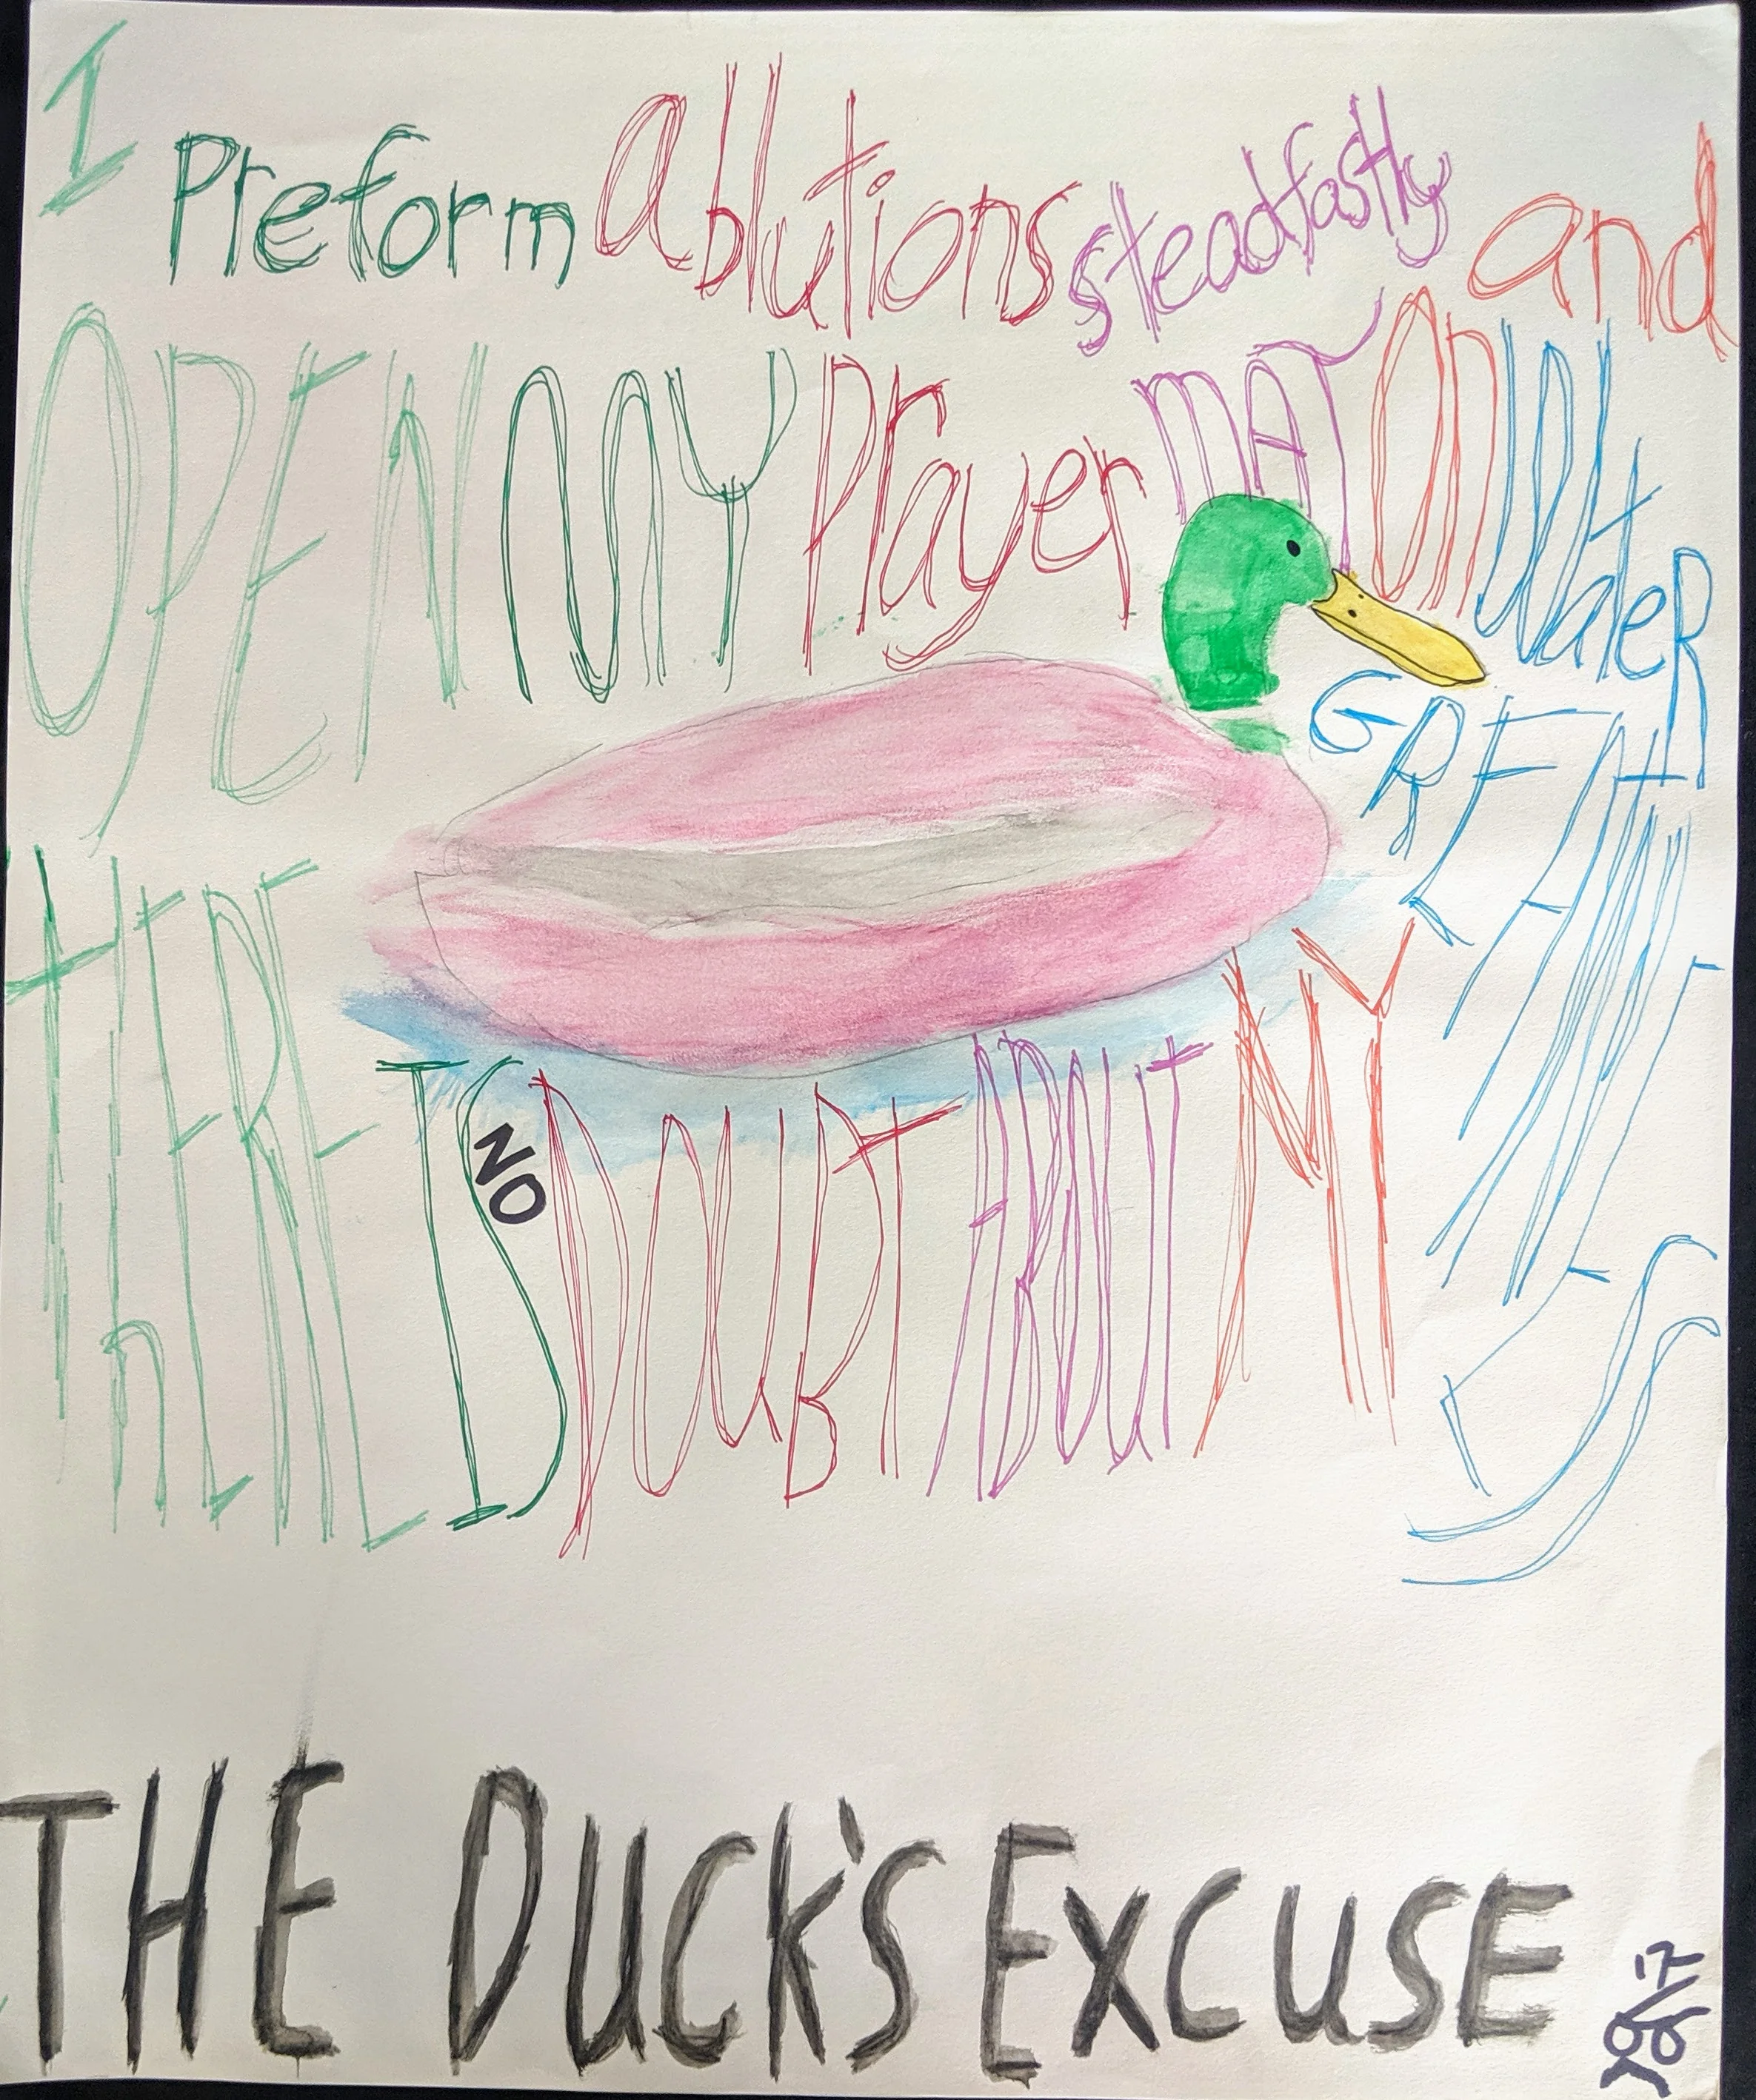 I Preform ablutions steadfastly and
OPEN MY Prayer mAT On WateR
THERE IS NO DOUBT ABOUT MY GREATNESS
THE DUCK'S EXCUSE